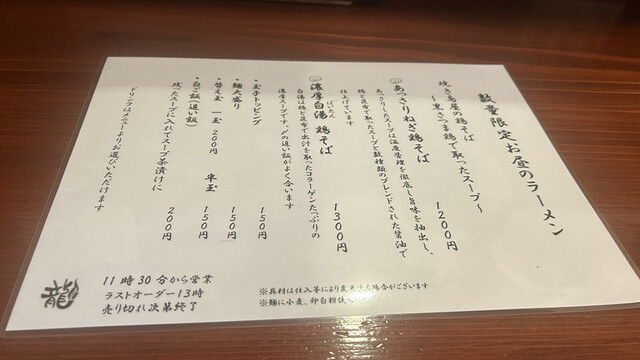 数量限定 お昼のラーメン
焼き鳥屋の鶏そば
～黒さつま鶏で取ったスープ～
あっさりねぎ鶏そば 1200円
あっさりしたスープは温度管理を徹底し旨味を抽出し、
鶏と昆布で取ったスープと数種類のブレンドされた醤油で
仕上げています
濃厚白湯鶏そば 1300円
ぱいたん
白湯は鶏と昆布で出汁を取ったコラーゲンたっぷりの
濃厚スープです。〆の追い飯がよく合います
・玉子トッピング 150円
・麺大盛り 150円
・替え玉 一玉 200円 半玉 150円
・白ご飯(追い飯) 200円
残ったスープに入れてスープ茶漬けに
ドリンクはメニューよりお選びいただけます
※具材は仕入等により変更する場合がございます
※麺に小麦、卵白粉使
11時30分から営業
ラストオーダー13時
売り切れ次第終了
龍